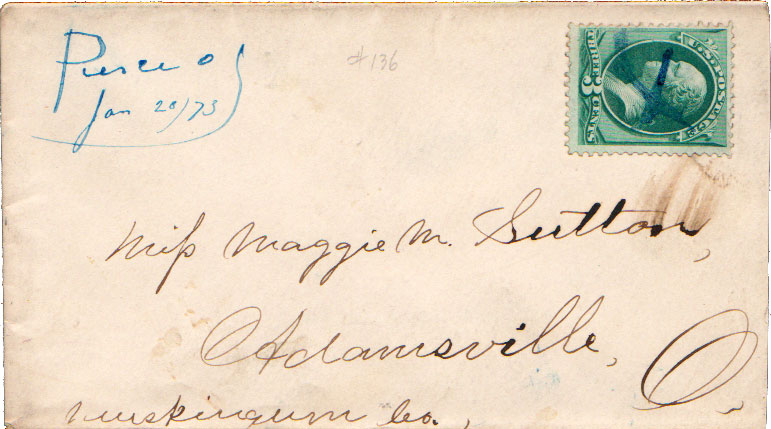 Pierce O
Jan 20/73
#136
U.S. POSTAGE
THREE 3 CENTS
Miss Maggie M. Sutton,
Adamsville, O.
Muskingum Co.,